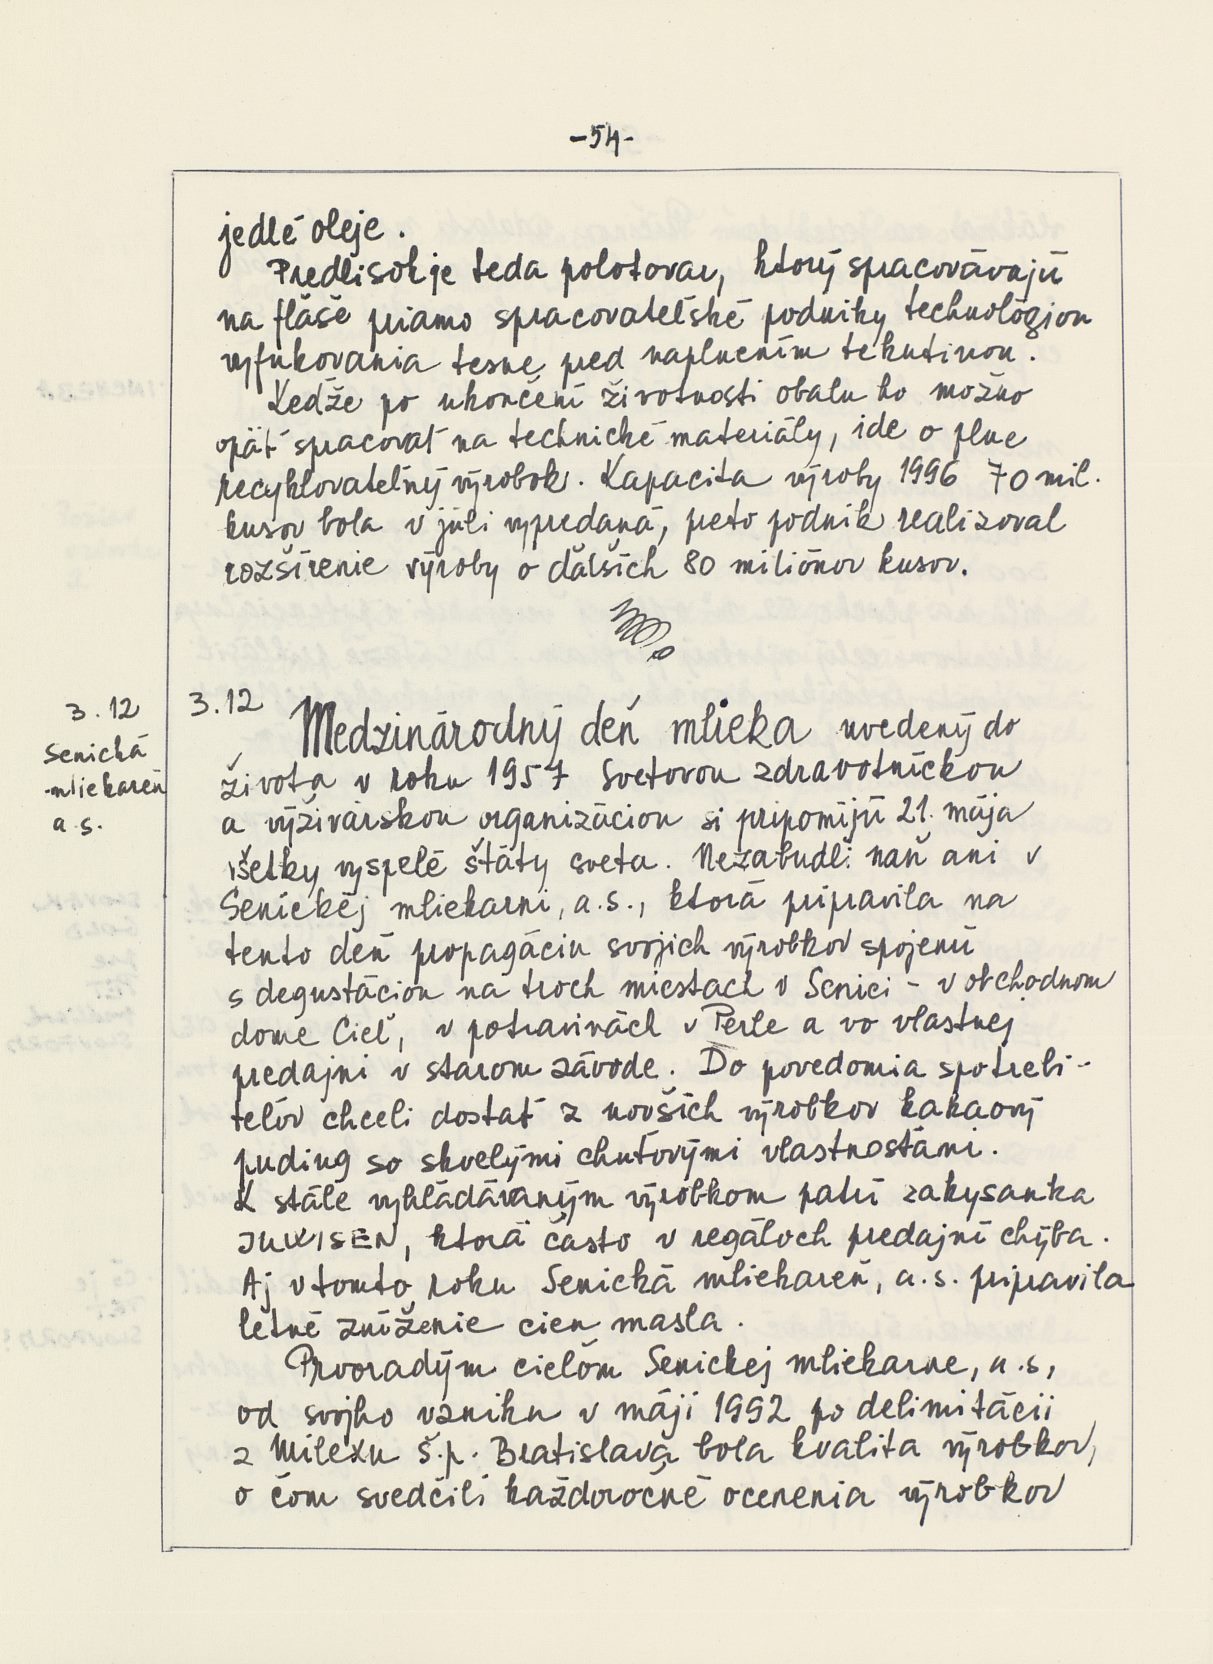 -54-
jedlé oleje.
Predlisok je teda polotovar, ktorý spracovávajú
na fľaše priamo spracovateľské podniky technológiou
vyfukovania tesne pred naplnením tekutinou.
Keďže po ukončení životnosti obalu ho možno
opäť spracovať na technické materiály, ide o plne
recyklovateľný výrobok. Kapacita výroby 1996 70 mil.
kusov bola v júli vypredaná, preto podnik realizoval
rozšírenie výroby o ďalších 80 miliónov kusov.
3.12
Senická
mliekareň
a.s.
3.12 Medzinárodný deň mlieka uvedený do
života v roku 1957 Svetovou zdravotníckou
a výživárskou organizáciou si pripomíjú 21. mája
všetky vyspelé štáty sveta. Nezabudli naň ani v
Senickej mliekarni, a.s., ktorá pripravila na
tento deň propagáciu svojich výrobkov spojenú
s degustáciou na troch miestach v Senici - v obchodnom
dome Cieľ, v potravinách v Perle a vo vlastnej
predajni v starom závode. Do povedomia spotrebi-
teľov chceli dostať z novších výrobkov kakaový
puding so skvelými chuťovými vlastnosťami.
K stále vyhľadávaným výrobkom patrí zakysanka
JUWISEN, ktorá často v regáloch predajní chýba.
Aj v tomto roku Senická mliekareň, a.s. pripravila
letné zníženie cien masla.
Prvoradým cieľom Senickej mliekarne, a.s,
od svojho vzniku v máji 1992 po delimitácii
z Milexu š.p. Bratislava bola kvalita výrobkov,
o čom svedčili každoročné ocenenia výrobkov